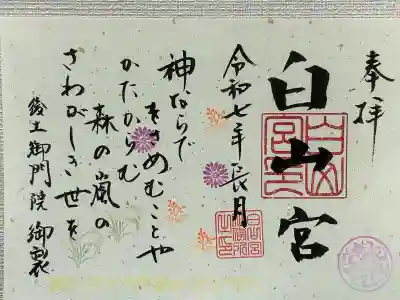 奉拝
白山宮
令和七年長月
神ならで
をさめむことや
かたからむ
森の嵐の
さわがしき世を
後土御門院御製